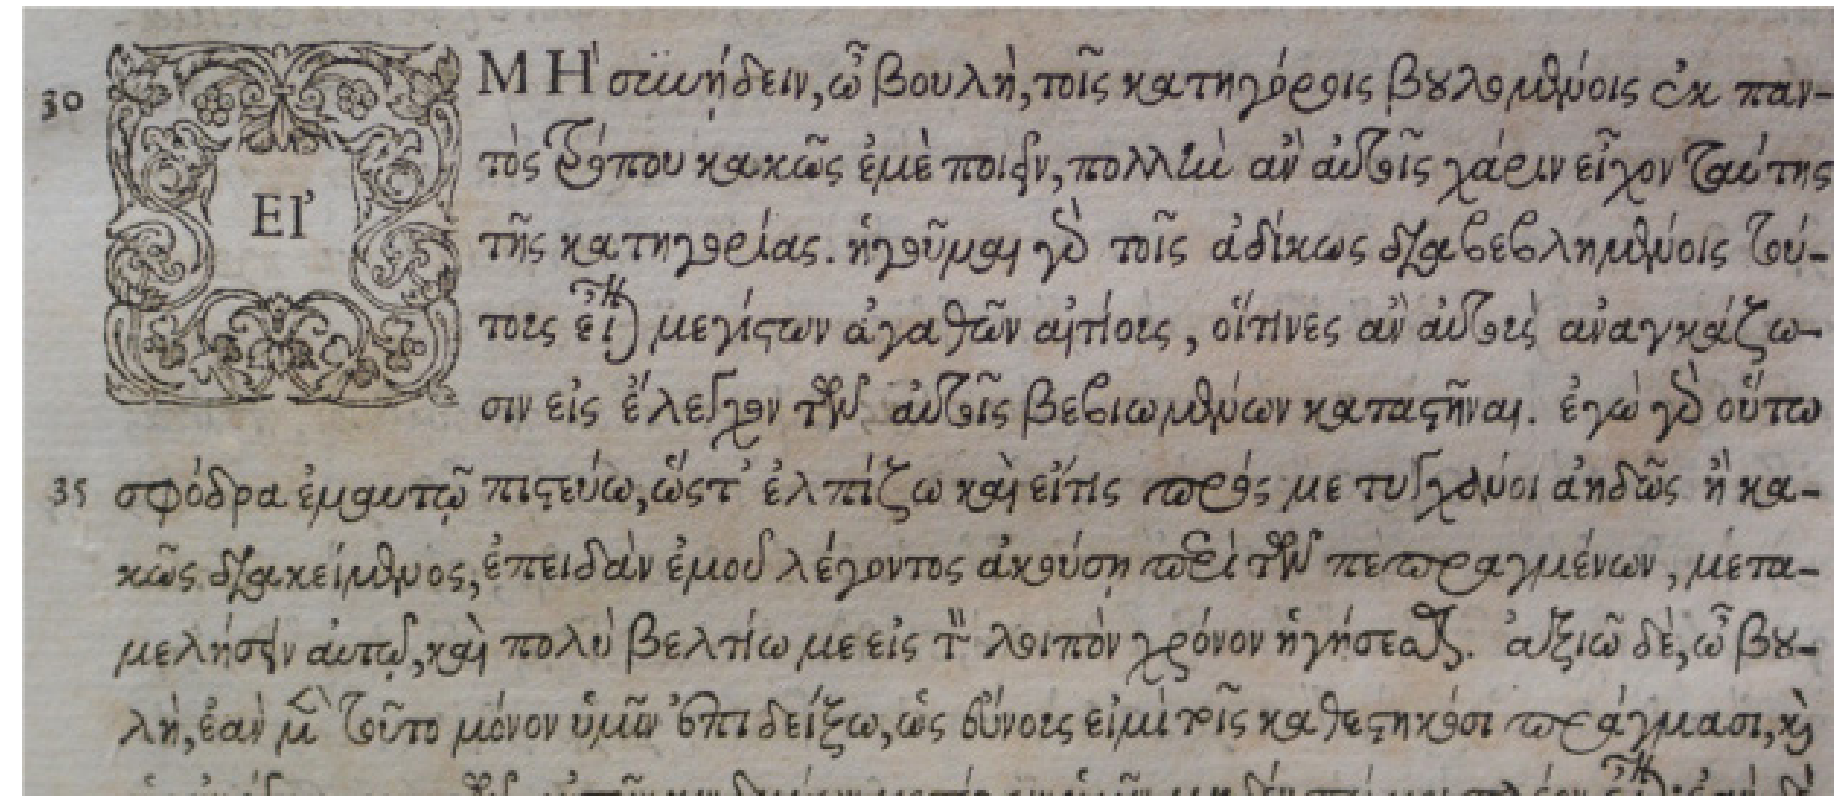 30 ΕΙ' ΜΗ' συνήδειν, ὦ βουλὴ, τοῖς κατηγόροις βουλομένοις ἐκ παν-
τὸς τρόπου κακῶς ἐμὲ ποιεῖν, πολλὴν ἂν αὐτοῖς χάριν εἶχον ταύτης
τῆς κατηγορίας. ἡγοῦμαι γὰρ τοῖς ἀδίκως διαβεβλημένοις τού-
τους εἶναι μεγίστων ἀγαθῶν αἰτίους, οἵτινες ἂν αὐτοὺς ἀναγκάζω-
σιν εἰς ἔλεγχον τῶν αὐτοῖς βεβιωμένων καταστῆναι. ἐγὼ γὰρ οὕτω
35 σφόδρα ἐμαυτῷ πιστεύω, ὥστ' ἐλπίζω καὶ εἴτις πρός με τυγχάνοι ἀηδῶς ἢ κα-
κῶς διακείμενος, ἐπειδὰν ἐμοῦ λέγοντος ἀκούσῃ περὶ τῶν πεπραγμένων, μετα-
μελήσειν αὐτῷ, καὶ πολὺ βελτίω με εἰς τὸν λοιπὸν χρόνον ἡγήσεσθαι. ἀξιῶ δὲ, ὦ βου-
λὴ, ἐὰν μὲν τοῦτο μόνον ὑμῖν ἐπιδείξω, ὡς εὔνους εἰμὶ τοῖς καθεστηκόσι πράγμασι, καὶ